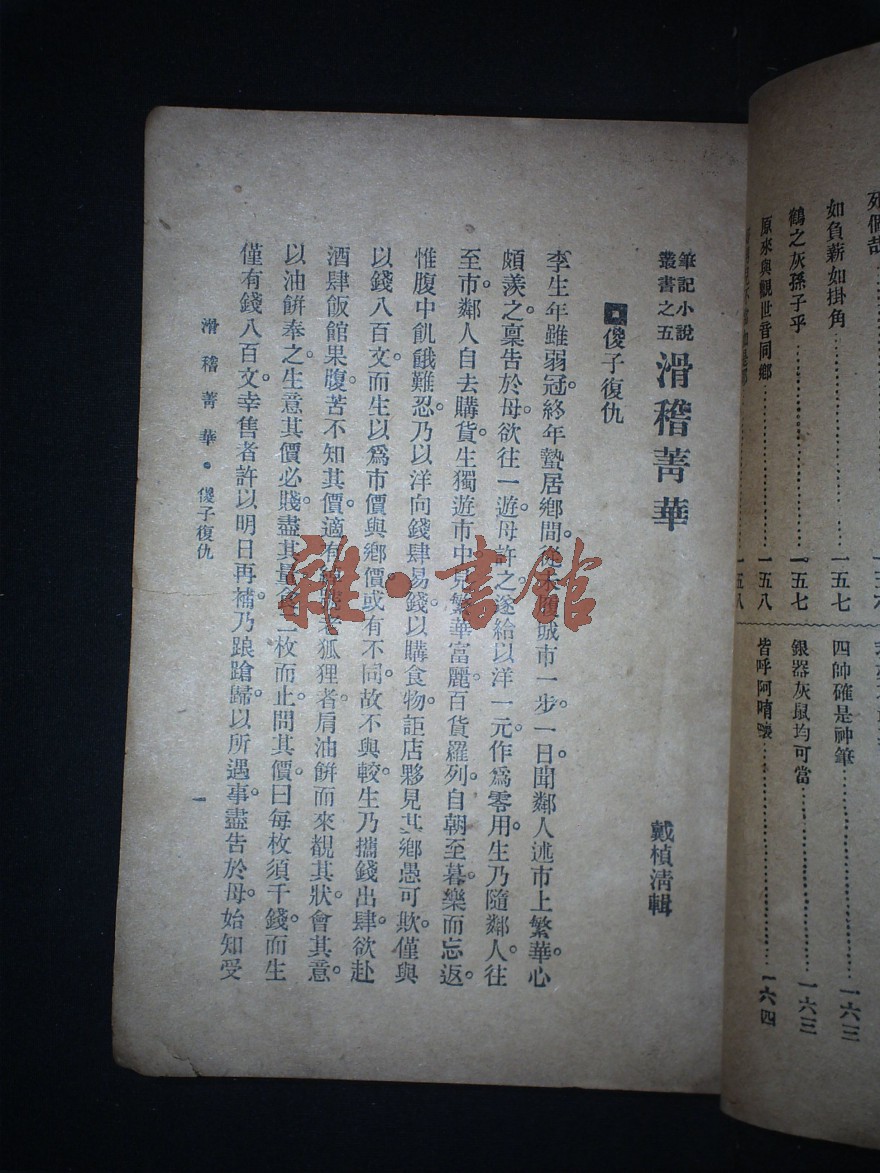 死個哉
如負薪如掛角……一五七
鶴之灰孫子乎……一五七
原來與觀世音同鄉……一五八
一五八
四帥確是神筆……一六三
銀器灰鼠均可當……一六三
皆呼阿唷囔……一六四
筆記小說
叢書之五
滑稽菁華
戴楨清輯
傻子復仇
李生年雖弱冠。終年蟄居鄉間。從未履城市一步。一日。聞鄰人述市上繁華。心
頗羨之。稟告於母。欲往一遊。母許之。遂給以洋一元。作爲零用。生乃隨鄰人往
至市。鄰人自去購貨。生獨遊市中。見繁華富麗。百貨羅列。自朝至暮。樂而忘返。
惟腹中飢餓難忍。乃以洋向錢肆易錢。以購食物。詎店夥見其鄉愚可欺。僅與
以錢八百文。而生以爲市價與鄉價。或有不同。故不與較。生乃攜錢出肆。欲赴
酒肆飯館果腹。苦不知其價。適有狐狸者。肩油餅而來。覩其狀。會其意。
以油餅奉之。生意其價必賤。盡其量食二枚而止。問其價。曰每枚須千錢。而生
僅有錢八百文。幸售者許以明日再補。乃踉蹌歸。以所遇事。盡告於母。始知受
滑稽菁華・傻子復仇
一
雜・書館